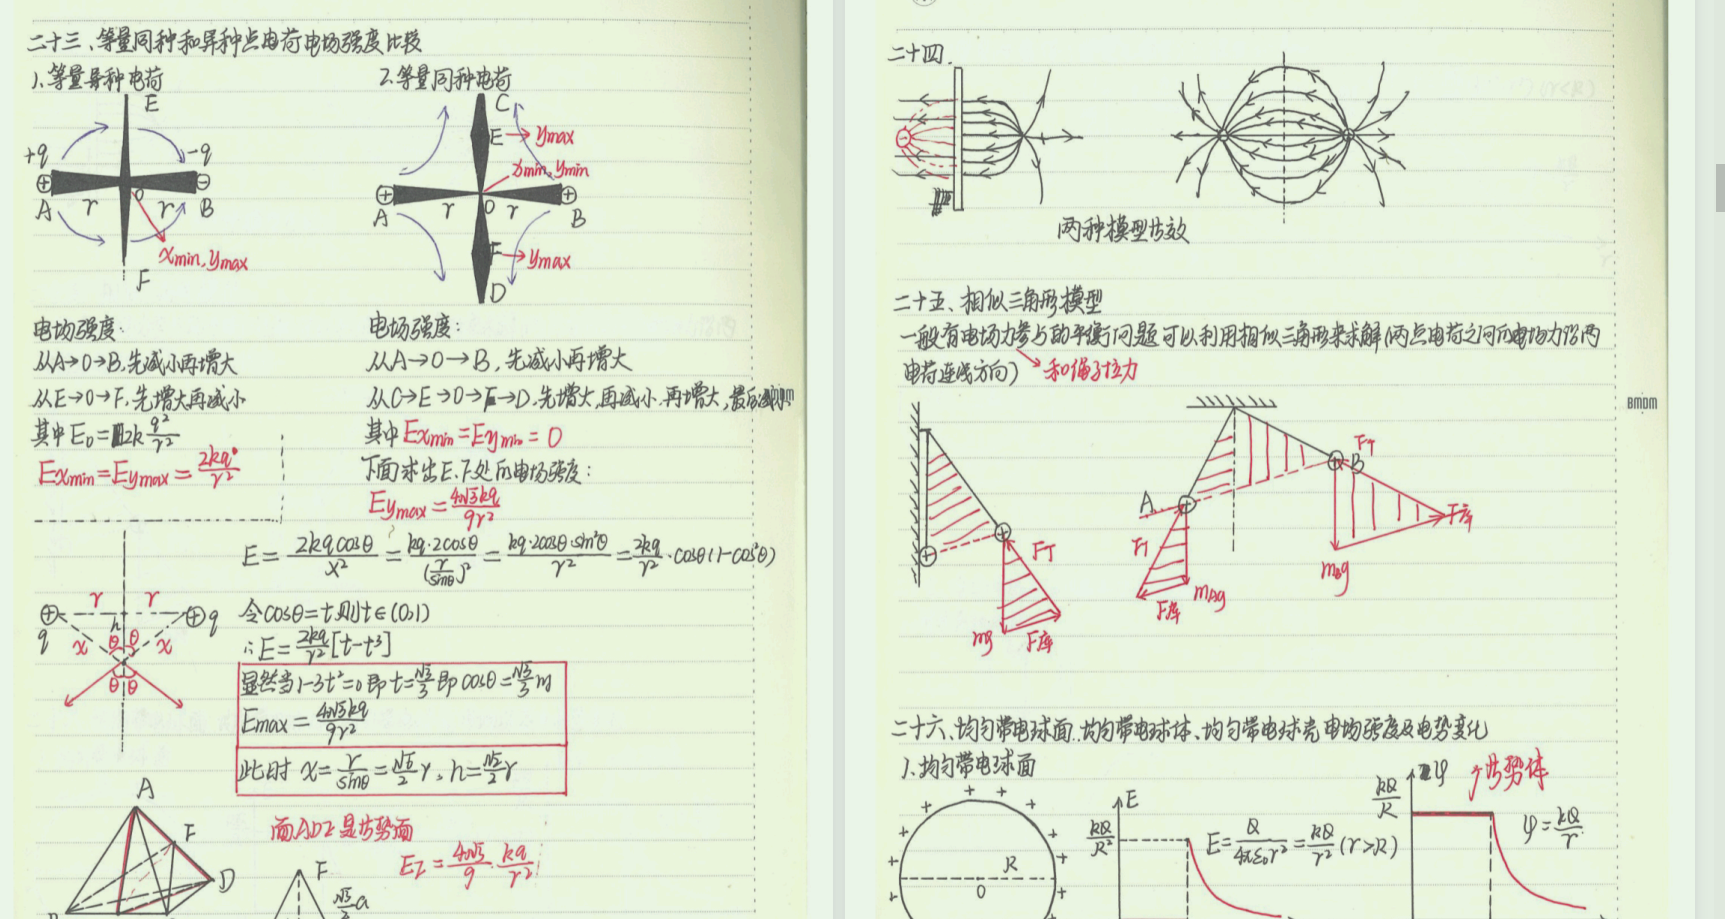 二十三、等量同种和异种点电荷电场强度比较
1.等量异种电荷
2.等量同种电荷
E
+q
-q
A
r
O
r
B
xmin,ymax
F
C
E→ymax
xmin,ymin
A
r
O
r
B
F→ymax
D
电场强度:
从A→O→B,先减小再增大
从E→O→F,先增大再减小
其中E₀=2k q²/r²
Exmin=Eymax=2kq/r²
电场强度:
从A→O→B,先减小再增大
从C→E→O→F→D,先增大,再减小,再增大,最后减小
其中Exmin=Eymin=0
下面求出E.F处的电场强度:
Eymax=4√3kq/9r²
E=2kqcosθ/x²=kq·2cosθ/(r/sinθ)²=kq·2cosθ·sin²θ/r²=2kq/r²·cosθ(1-cos²θ)
r
r
q
h
q
x
θ
θ
x
θ
θ
令cosθ=t,则t∈(0,1)
∴E=2kq/r²[t-t³]
显然当1-3t²=0即t=√3/3即cosθ=√3/3时
Emax=4√3kq/9r²
此时x=r/sinθ=√6/2r,h=√2/2r
A
F
D
面ADZ是等势面
Ez=4√3/9·kq/r²
F
二十四.
两种模型等效
二十五、相似三角形模型
一般有电场力参与的平衡问题可以利用相似三角形来求解(两点电荷之间的电场力沿两
电荷连线方向)
和绳子拉力
BMDM
FT
mg
F库
A
FT
mAg
F库
FT
B
F库
mBg
二十六、均匀带电球面、均匀带电球体、均匀带电球壳电场强度及电势变化
1.均匀带电球面
R
O
E
kQ/R²
E=Q/4πε₀r²=kQ/r²(r>R)
kQ/R
φ
等势体
φ=kQ/r